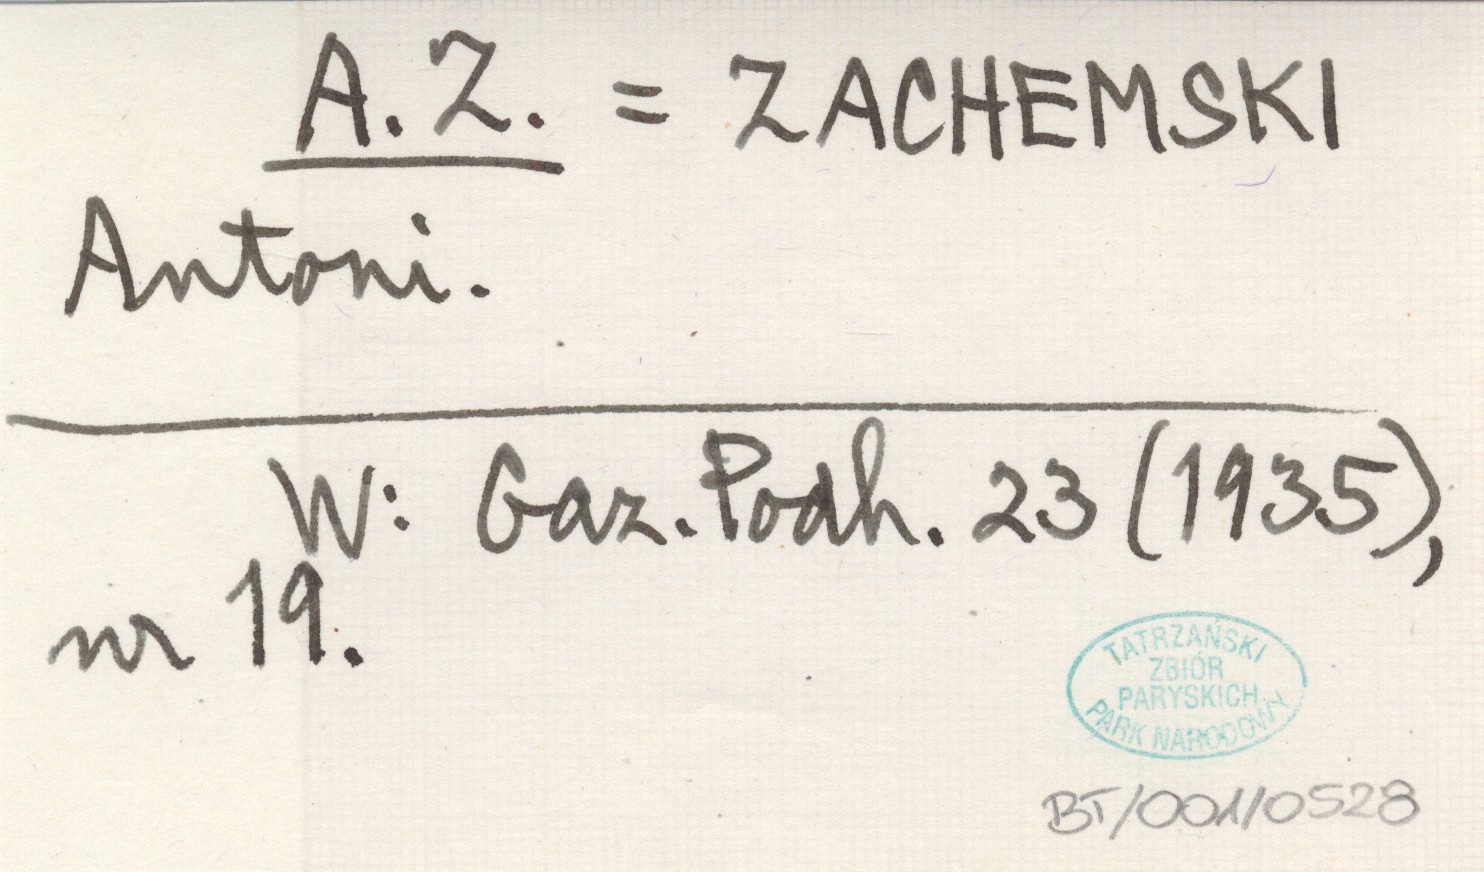 A.Z. = ZACHEMSKI
Antoni.
W: Gaz. Podh. 23 (1935),
nr 19.
TATRZAŃSKI
ZBIÓR
PARYSKICH
PARK NARODOWY
BT/001/0528